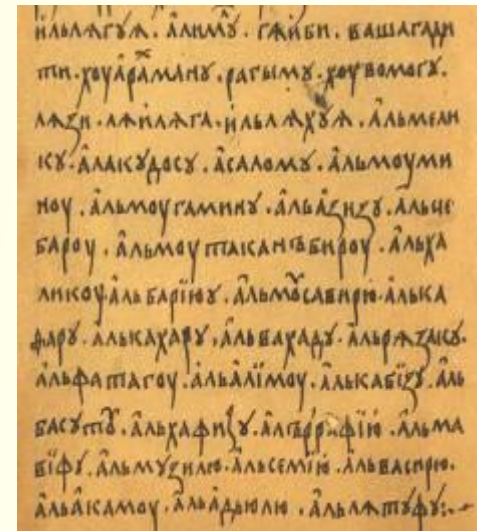 ильлѧгуѧ. а̂лимꙋ̂. гѧ̂иби. вашагади
ти. хоуа̂раⷯма̂нꙋ. рагымꙋ. хоувомогꙋ.
лѧзи. лѧи̂лѧга. ильлѧхуѧ. а̂льмели
кꙋ. а̂лакꙋдосꙋ. а̂саломꙋ. а̂льмоуми
ноу. а̂льмоугаминꙋ. а̂льа̂зизꙋ. а̂льче
бароу. а̂льмоутаканъбироу. а̂льха
ликоу а̂льбарїюꙋ. а̂льмꙋсавирю. а̂лька
фарꙋ. а̂лькахарꙋ. а̂львахадꙋ. а̂льрѧзакꙋ.
а̂льфатагоу. а̂льа̂лїмоу. а̂лькабїзꙋ. а̂ль
басꙋтꙋ̂. а̂льхафизꙋ. а̂лъррафїю. а̂льма
вїфꙋ. а̂льмꙋзилю. а̂льсемїю. а̂львасирю.
а̂льа̂камоу. а̂льа̂дьюлю. а̂льлѧтꙋфꙋ:~